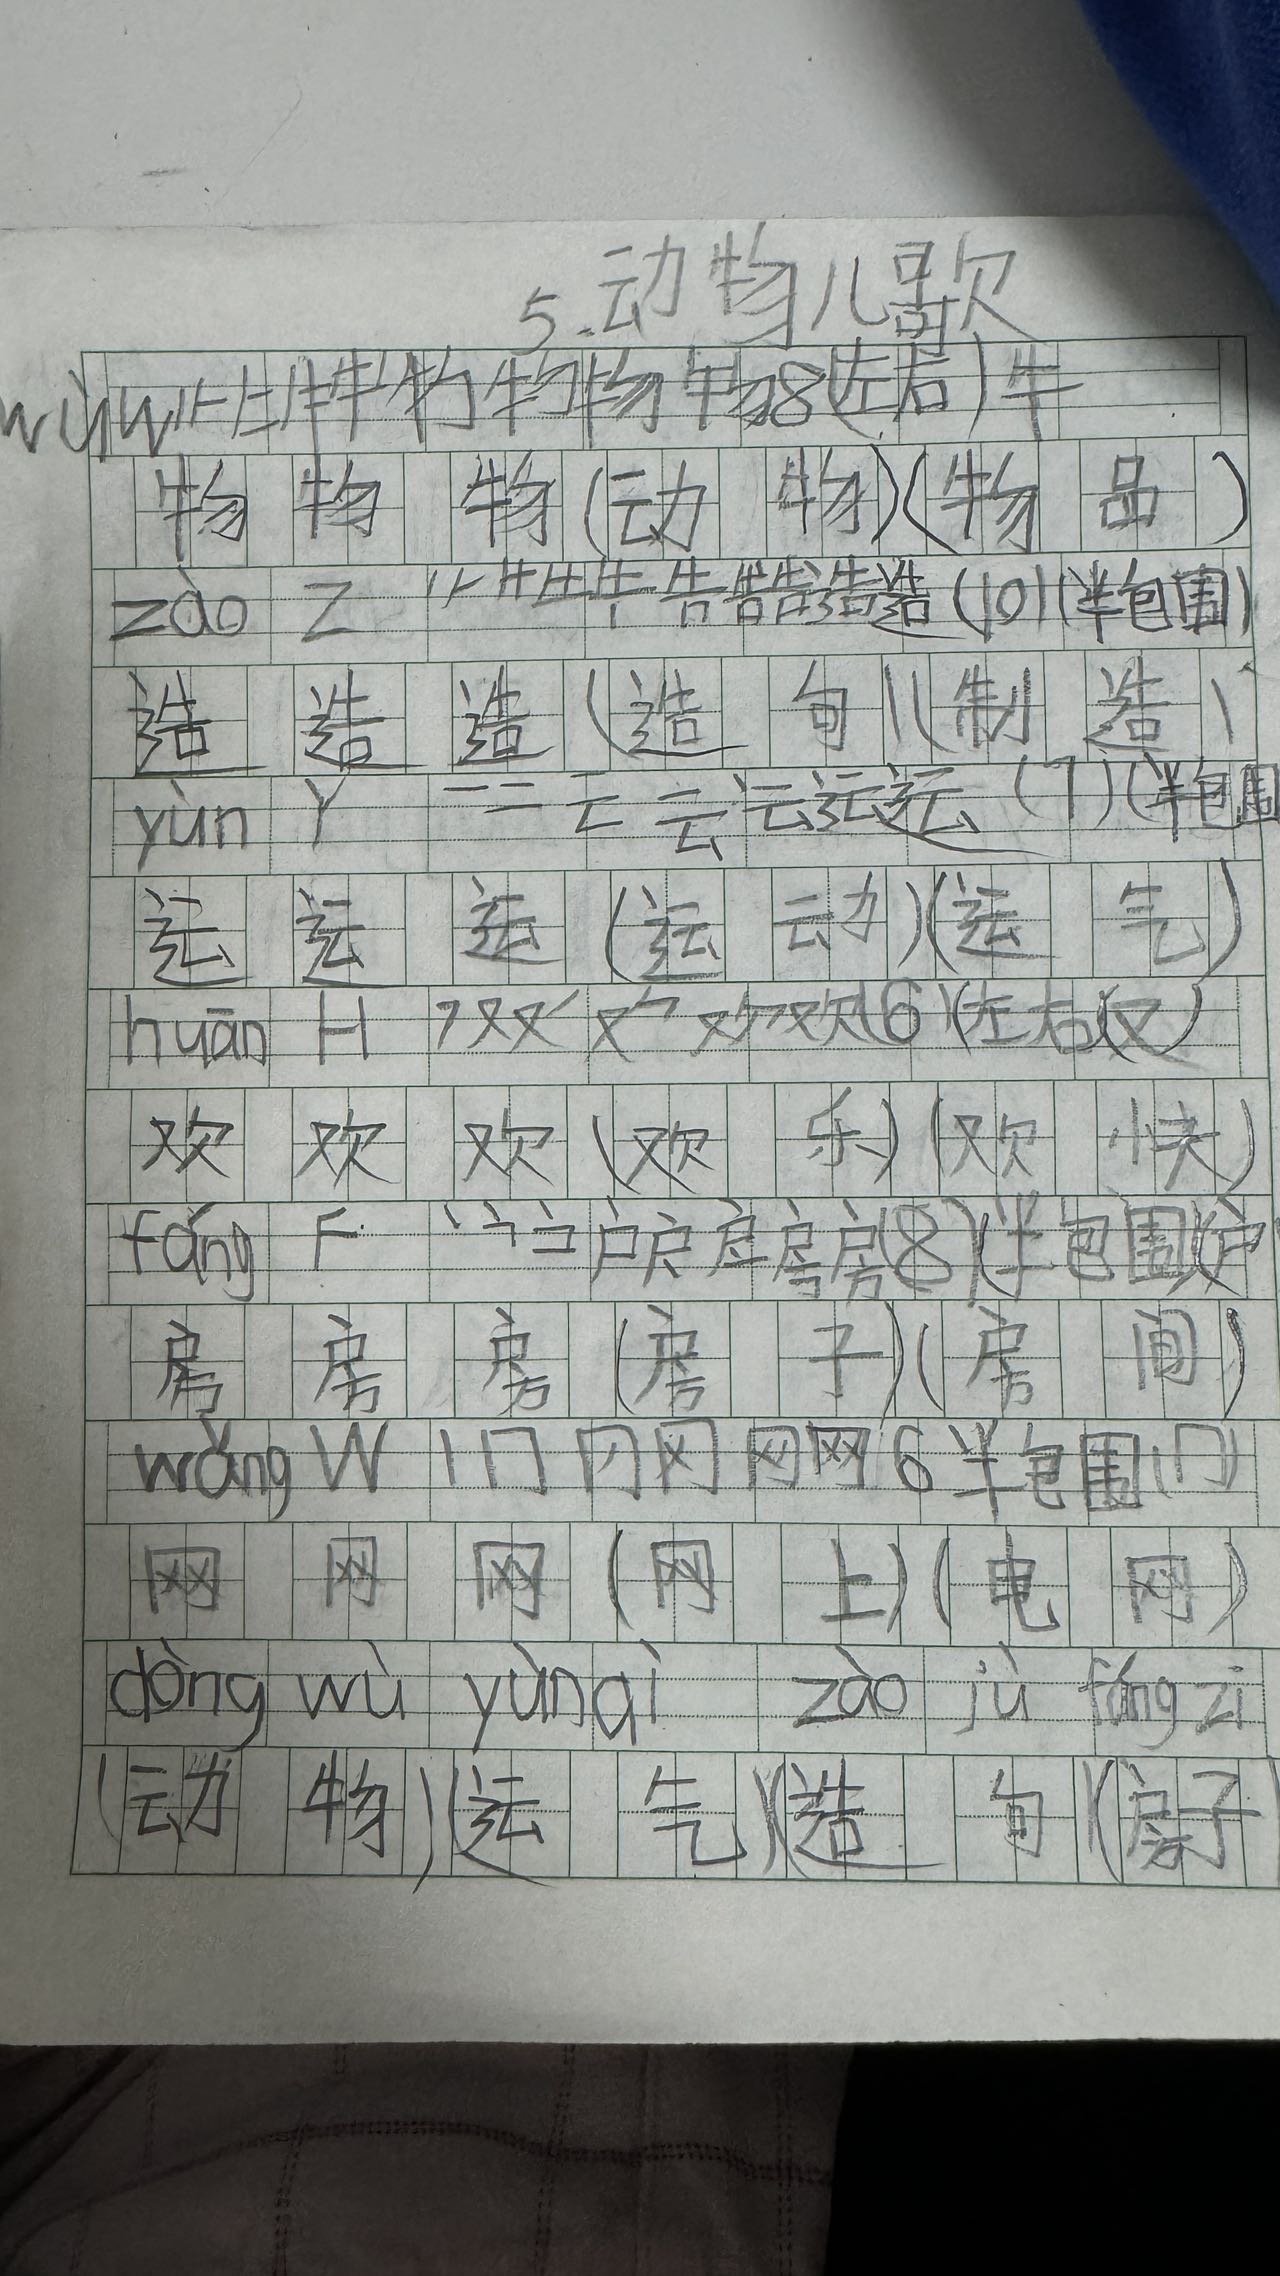 5.动物儿歌
wù W 物 8(左右) 牛
物 物 物(动物)(物品)
zào Z 告 造(10)(半包围)
造 造 造(造句)(制造)
yùn Y 一 二 云 云 运(7)(半包围
运 运 运(运动)(运气)
huān H 又 欢(6)(左右)(又)
欢 欢 欢(欢乐)(欢快)
fáng F 户 房(8)(半包围)(户
房 房 房(房子)(房间)
wǎng W 冂 网 6 半包围(冂)
网 网 网(网上)(电网)
dòng wù yùn qì zào jù fáng zi
(动物)(运气)(造句)(房子